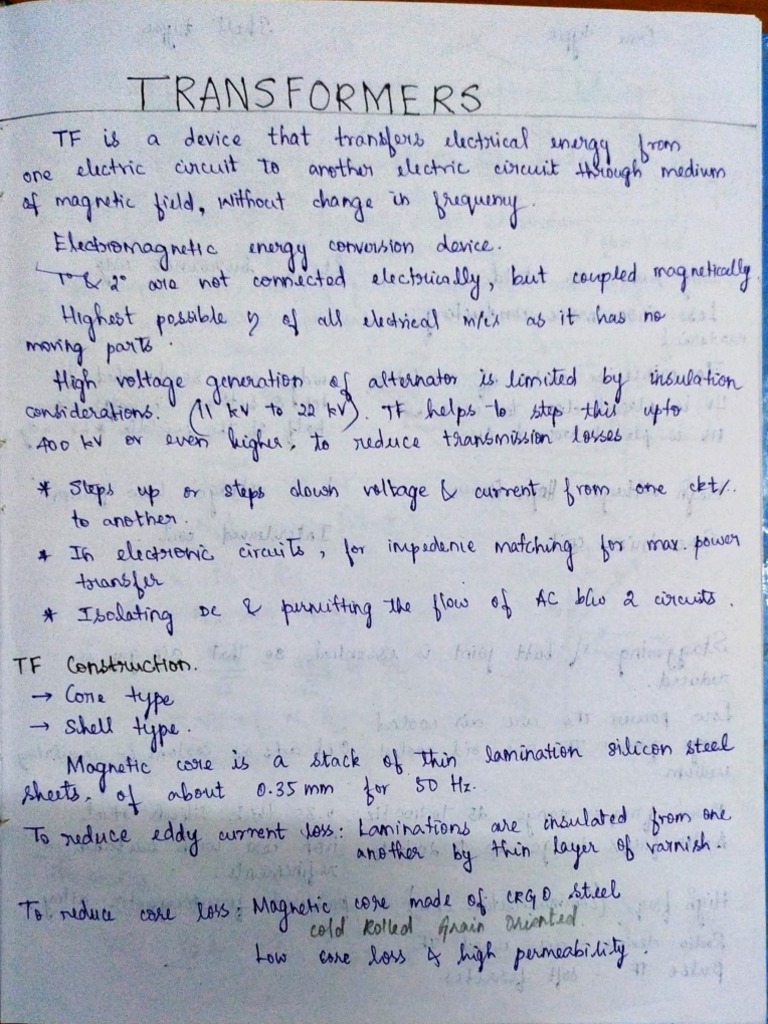 TRANSFORMERS
TF is a device that transfers electrical energy from
one electric circuit to another electric circuit through medium
of magnetic field, without change in frequency.
Electromagnetic energy conversion device.
1° & 2° are not connected electrically, but coupled magnetically.
Highest possible η of all electrical m/cs as it has no
moving parts.
High voltage generation of alternator is limited by insulation
considerations. (11 kV to 22 kV). TF helps to step this upto
400 kV or even higher, to reduce transmission losses
* Steps up or steps down voltage & current from one ckt/.
to another.
* In electronic circuits, for impedenie matching for max. power
transfer
* Isolating DC & permitting the flow of AC b/w 2 circuits.
TF Construction.
→ Core type
→ Shell type.
Magnetic core is a stack of thin lamination silicon steel
sheets, of about 0.35 mm for 50 Hz.
To reduce eddy current loss: Laminations are insulated from one
another by thin layer of varnish.
To reduce core loss: Magnetic core made of CRGO steel
cold Rolled Grain Oriented
Low core loss & high permeability.